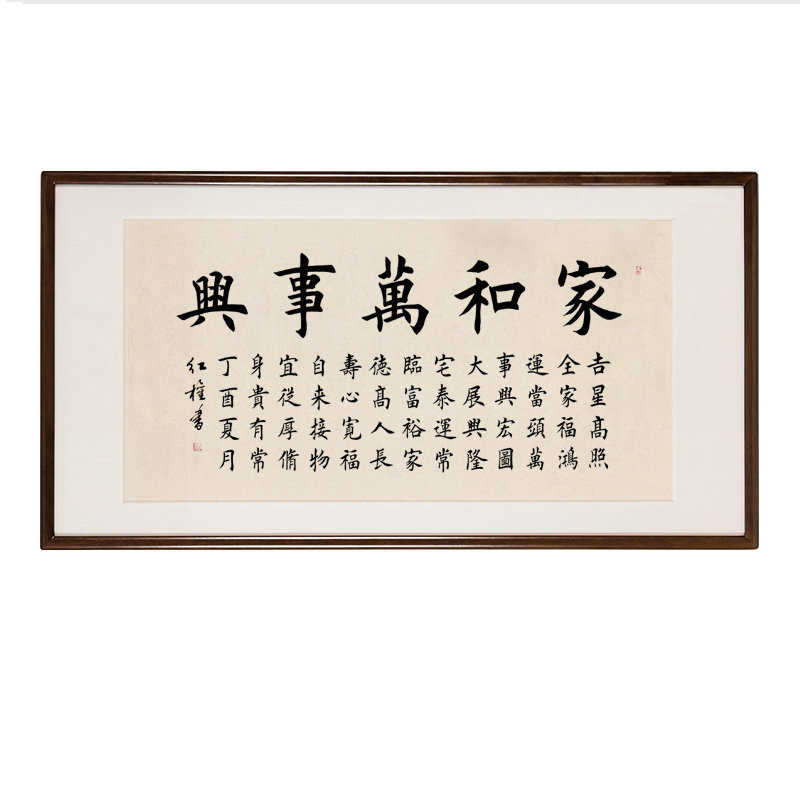 家和萬事興
吉星髙照
全家福鴻
運當頭萬
事興宏圖
大展興隆
宅泰運常
臨富裕家
徳髙人長
壽心寛福
自来接物
宜従厚脩
身貴有常
丁酉夏月
红權書